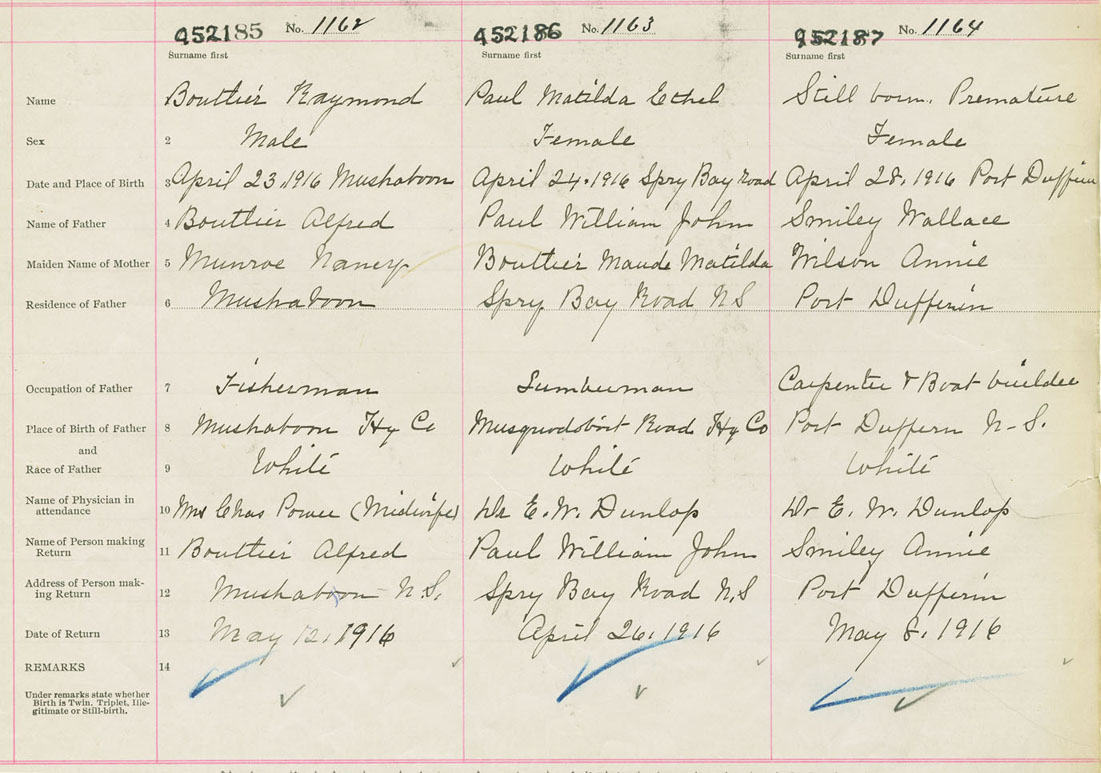 952185 No. 1162 952186 No. 1163 952187 No. 1164
Surname first Surname first Surname first
Name Bouttier Raymond Paul Matilda Ethel Still born. Premature
Sex 2 Male Female Female
Date and Place of Birth 3 April 23, 1916 Mushaboon April 24. 1916 Spry Bay Road April 28. 1916 Port Dufferin
Name of Father 4 Bouttier Alfred Paul William John Smiley Wallace
Maiden Name of Mother 5 Munroe Nancy Bouttier Maude Matilda Wilson Annie
Residence of Father 6 Mushaboon Spry Bay Road N S Port Dufferin
Occupation of Father 7 Fisherman Lumberman Carpenter & Boat builder
Place of Birth of Father 8 Mushaboon Hx Co Musquodoboit Road Hx Co Port Duffern N-S.
and
Race of Father 9 White White White
Name of Physician in
attendance 10 Mrs Chas Power (Midwife) Dr E. W. Dunlop Dr E. W. Dunlop
Name of Person making
Return 11 Bouttier Alfred Paul William John Smiley Annie
Address of Person mak-
ing Return 12 Mushaboon N.S. Spry Bay Road N.S Port Dufferin
Date of Return 13 May 12, 1916 April 26, 1916 May 8. 1916
REMARKS 14
Under remarks state whether
Birth is Twin, Triplet, Ille-
gitimate or Still-birth.